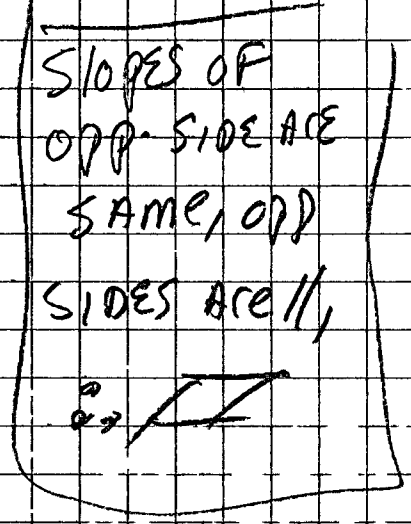 SlOPES OF
OPP. SIDE ARE
SAME, OPP
SIDES Are //,
∴ → ▱